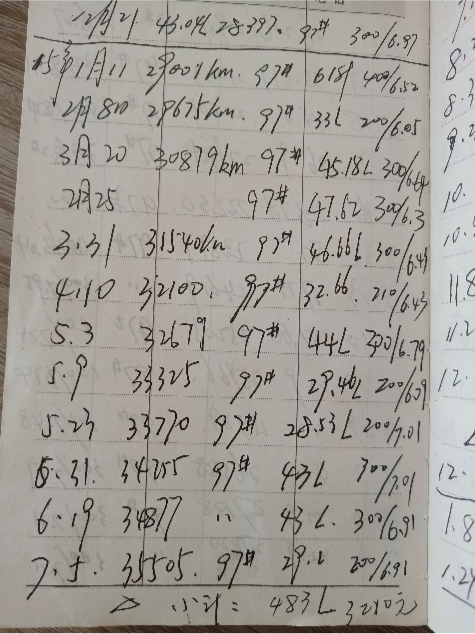 12月21 43.04L 28397. 97# 300/6.97
15年1月11 29001km. 97# 61.8 400/6.52
2月8日 29675km. 97# 33L 200/6.05
3月20 30879km 97# 45.18L 300/6.64
2月25 97# 47.62 300/6.3
3.31 31540km 97# 46.66L 300/6.43
4.10 32100. 97# 32.66. 210/6.43
5.3 32679 97# 44L 300/6.79
5.9 33325 97# 29.46L 200/6.79
5.23 33770 97# 28.53L 200/7.01
5.31. 34255 97# 43L 300/7.01
6.19 34877 〃 43L. 300/6.91
7.5. 35505. 97# 29.L 200/6.91
△ 小计: 483L 3210元